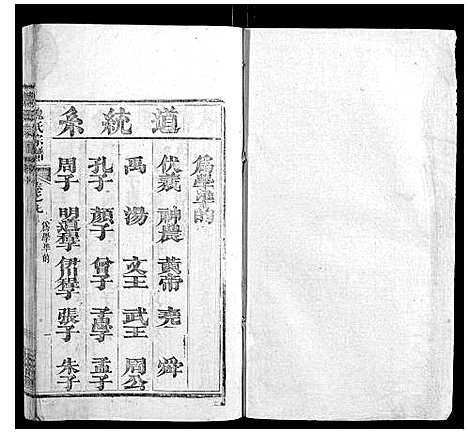 道統系
為學準的
伏羲 神農 黃帝 堯 舜
禹 湯 文王 武王 周公
孔子 顏子 曾子 孟子
周子 明道 伊川 張子 朱子
為學準的